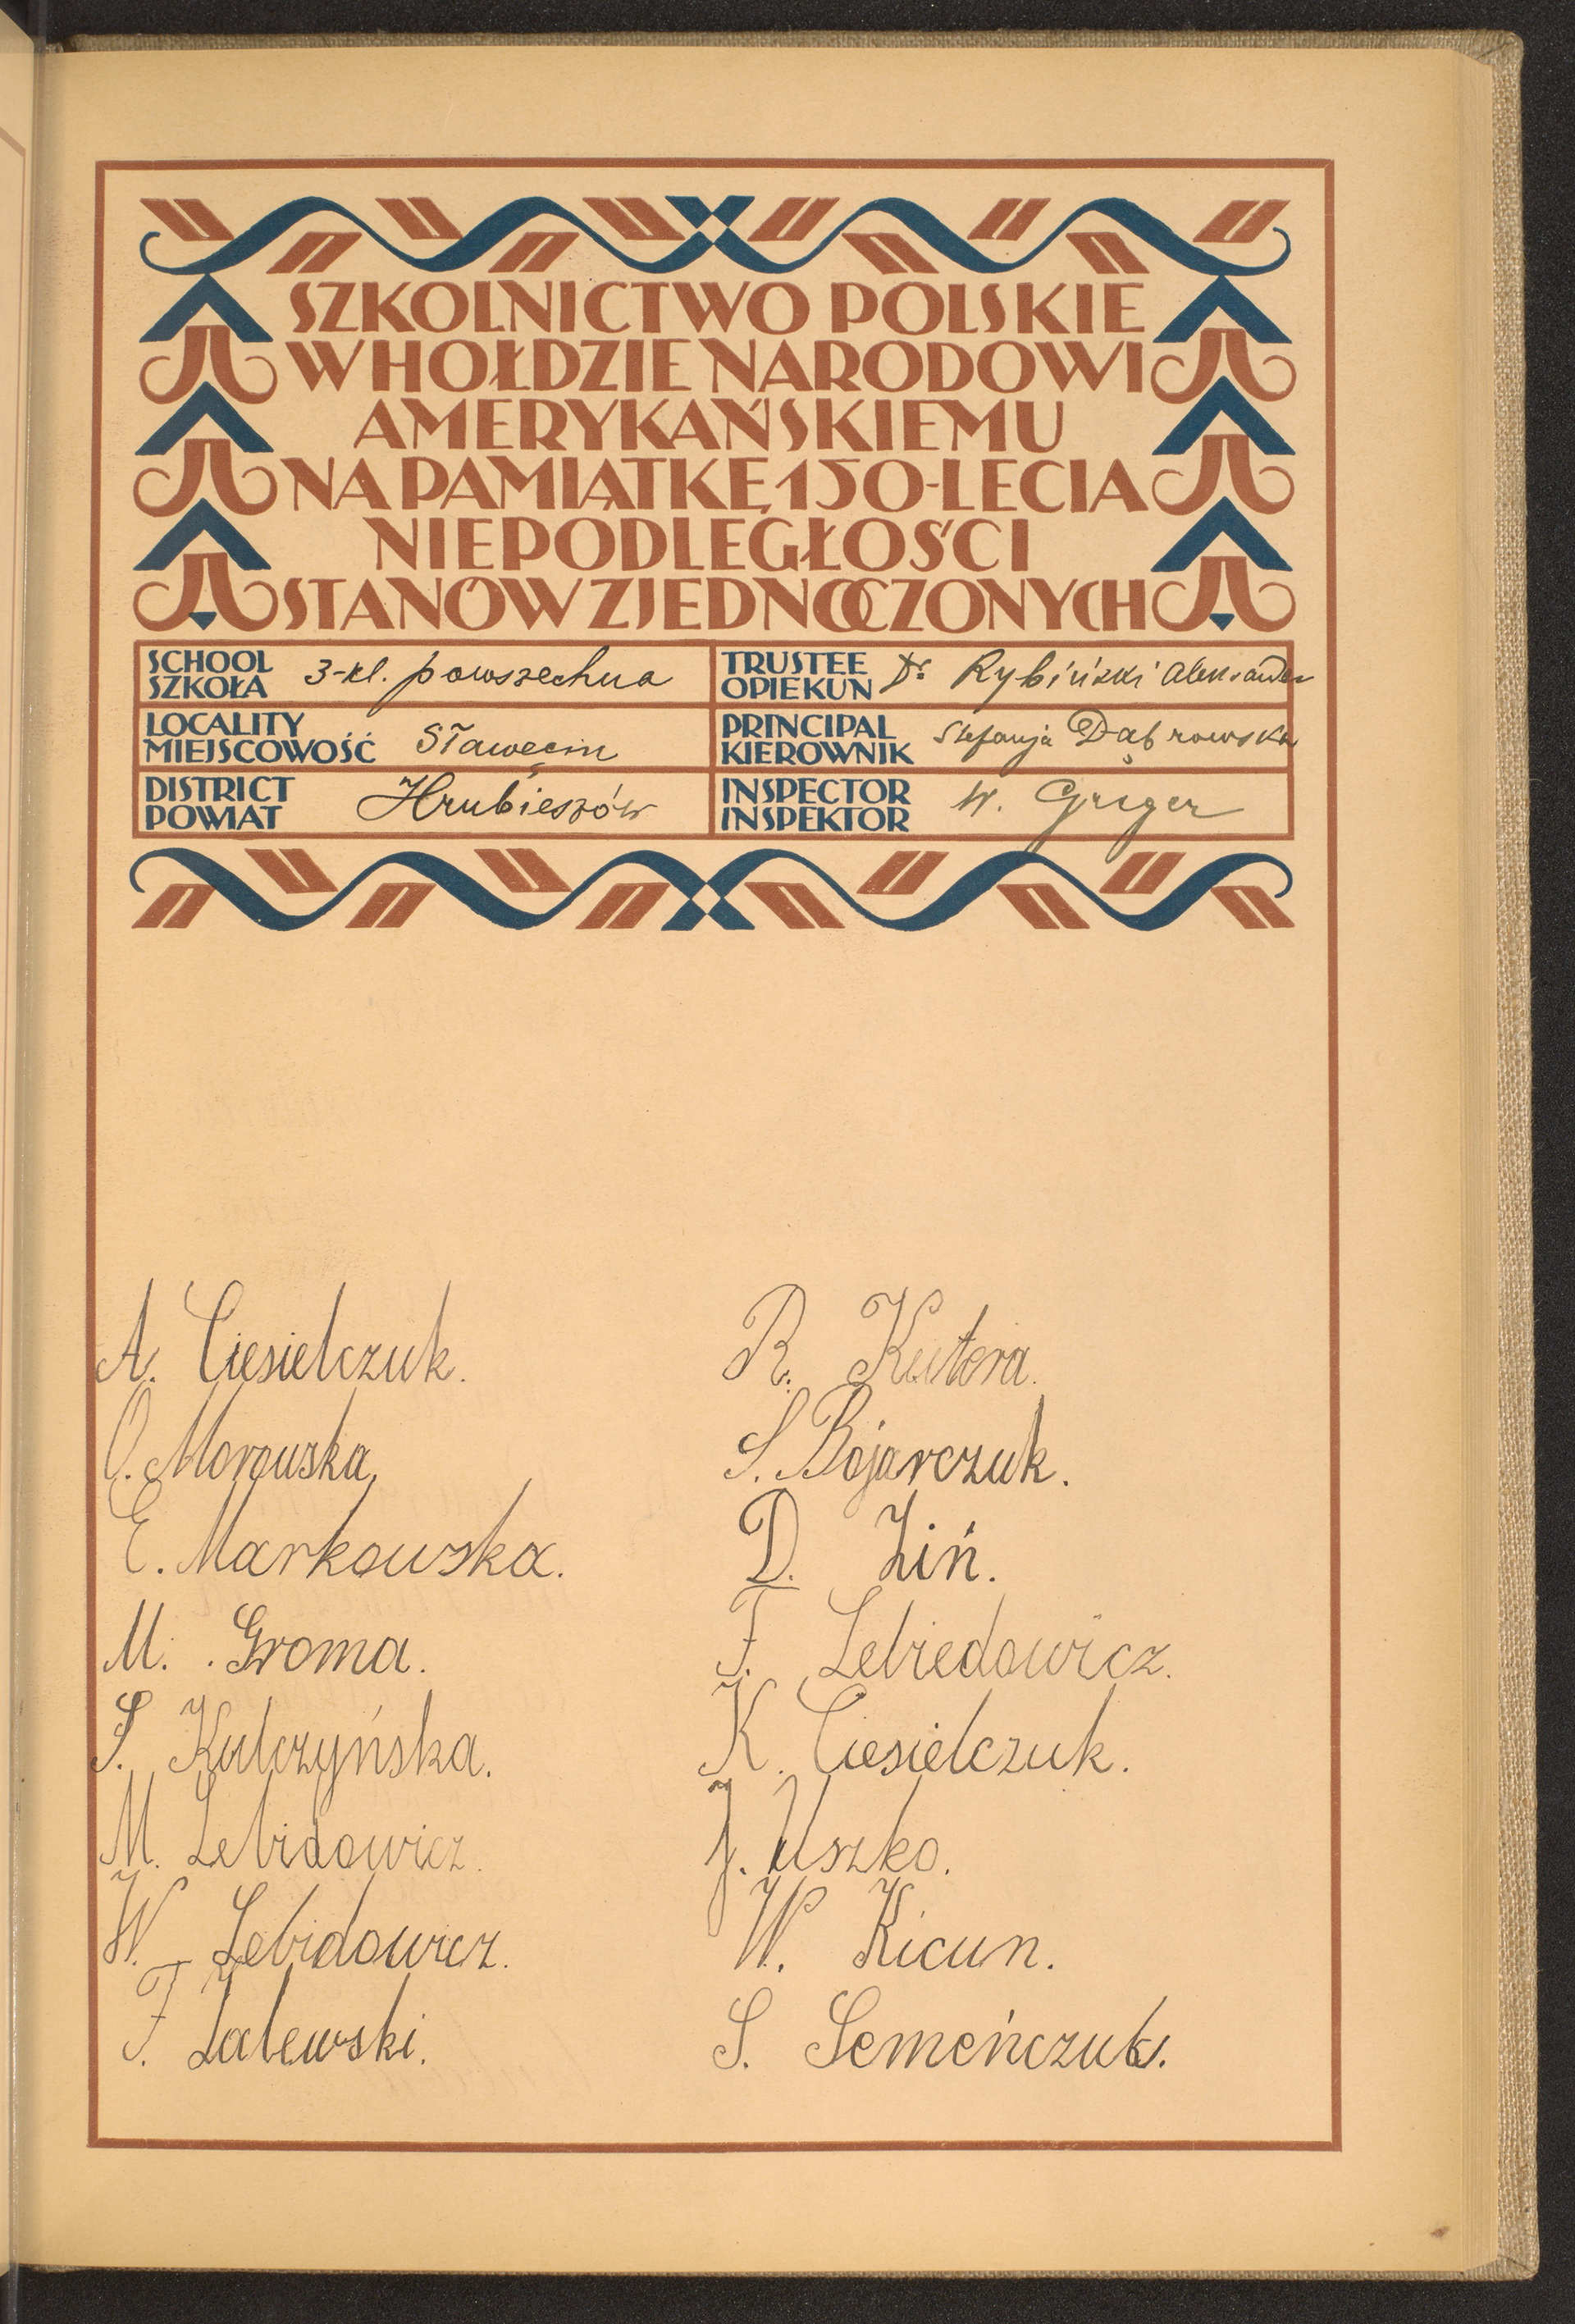 SZKOLNICTWO POLSKIE
W HOŁDZIE NARODOWI
AMERYKAŃSKIEMU
NA PAMIĄTKĘ 150-LECIA
NIEPODLEGŁOŚCI
STANÓW ZJEDNOCZONYCH
SCHOOL
SZKOŁA
3-kl. powszechna
TRUSTEE
OPIEKUN
Dr. Rybiński Aleksander
LOCALITY
MIEJSCOWOŚĆ
Sławęcin
PRINCIPAL
KIEROWNIK
Stefanja Dąbrowska
DISTRICT
POWIAT
Hrubieszów
INSPECTOR
INSPEKTOR
W. Greger
A. Ciesielczuk.
O. Morawska,
E. Markowska.
M. Groma.
S. Kulczyńska.
M. Lebidowicz.
W. Lebidowicz.
F. Zalewski.
R. Kutera.
S. Bojarczuk.
D. Ziń.
F. Lebiedowicz.
K. Ciesielczuk.
J. Uszko.
W. Kicun.
S. Semeńczuk.